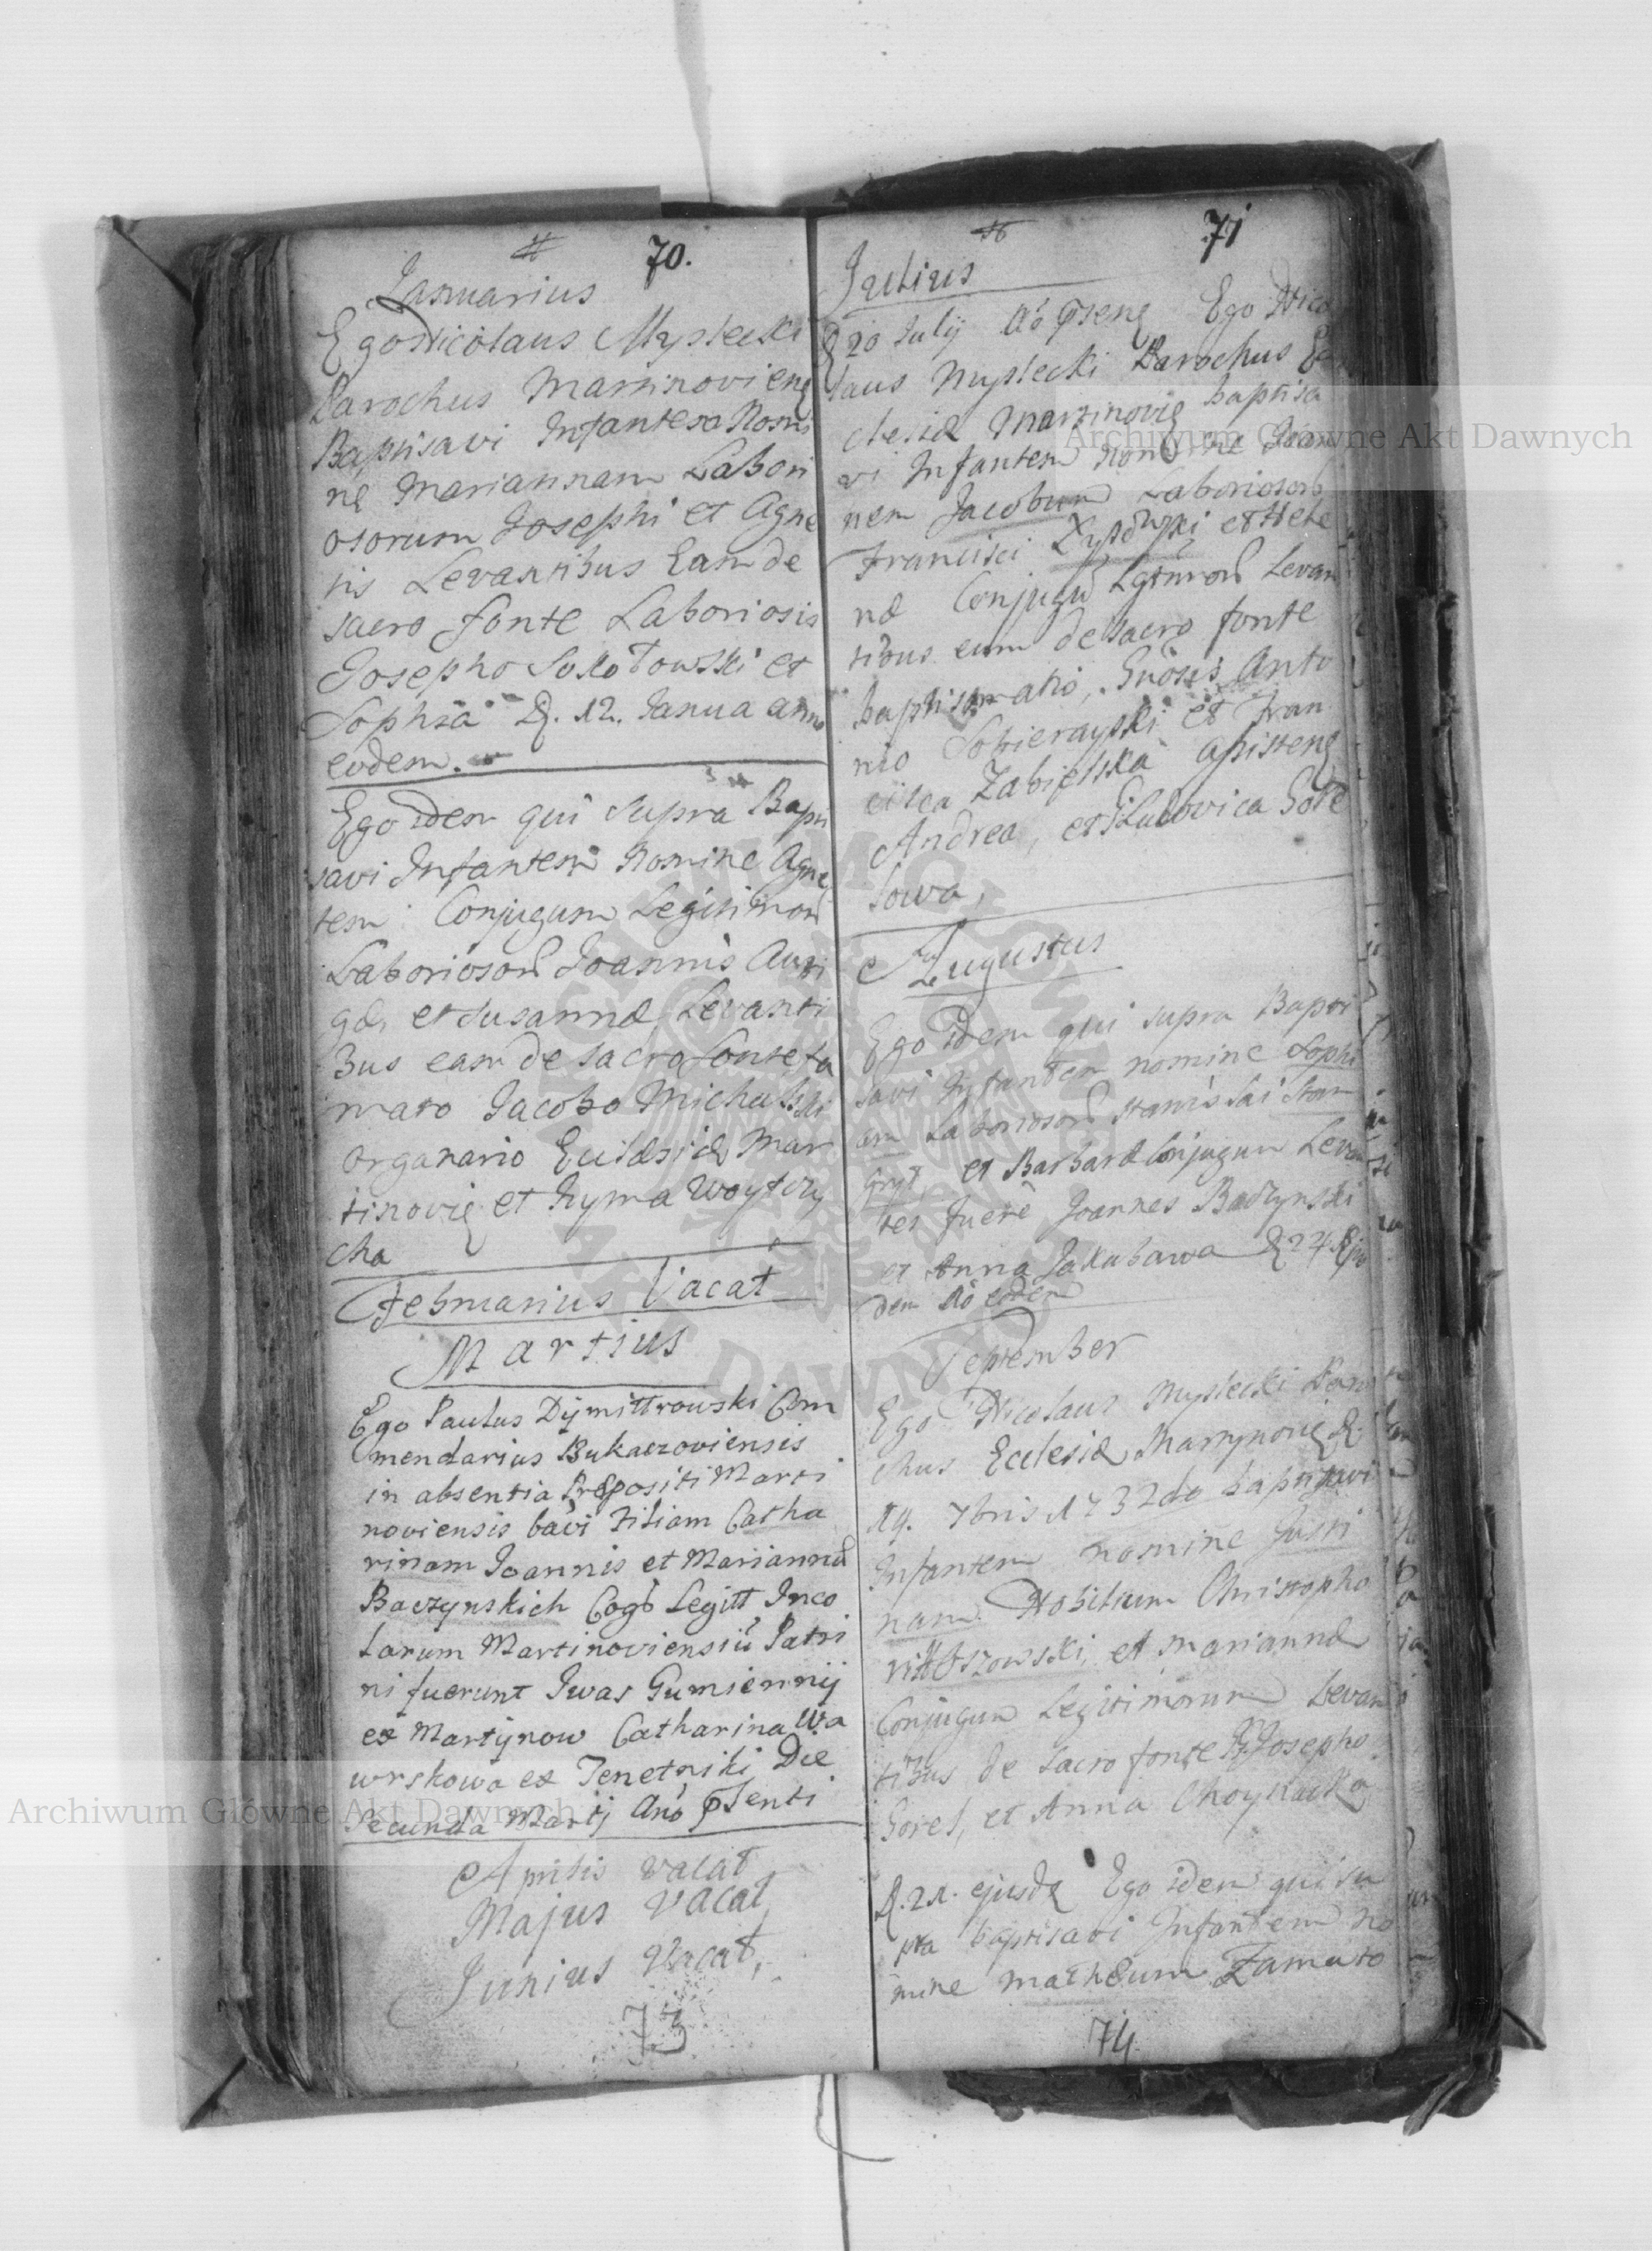 70.
Januarius
Ego Nicolaus Mysłecki
Parochus Martinovieng
Baptisavi Infantem Nomi
nę Mariannam Labori
osorum Josephi et Agne
tis Levantibus Eam de
sacro fonte Laboriosis
Josepho Sokołowski et
Sophia D. 12. Janua anno
eodem.
Ego idem qui supra Bapti
savi Infantem Nomine Agne
tem Conjugum Legitimor
Laborioson Joannis Auri
gæ, et Susannæ Levanti
bus eam de sacro fonte fa
mato Jacobo Michalski
Organario Ecclesiæ Mar
tinovię et Hryma Woytczy
cha
Februarius Vacat
Martius
Ego Paulus Dymittrowski Com
mendarius Bukaczoviensis
in absentia Præpositi Marti
noviensis bavi Filiam Catha
rinam Joannis et Mariannæ
Baczynskich Cogb Legitt Inco
larum Martinoviensiu Patri
ni fuerunt Iwas Gumiennij
ex Martynow Catharina Wa
wrskowa ex Tenetniki Die
Secunda Martij Ano psenti
Aprilis vacat
Majus Vacat
Junius Vacat,
73
71
Julius
D 20 Julij Ao pseng Ego Nico
laus Mysłecki Parochus Ec
clesiæ Martinovię baptisa
vi Infantem Nomine Joan
nem Jacobum Laborioson
Francisci et Hele
næ Conjugu Lgtmon Levan
tibus eum de sacro fonte
baptismatis, Gnosis Anto
nio Sobierayski et Fran
cisca Zabielska Assisteng
Andrea, et Ludovica Gore
lowa,
Augustus
Ego idem qui supra Bapti
savi Infantem nomine Sophi
am Laborioson Stanislai Stan
gryt, et Barbaræ Conjugum Levan
tes fuere Joannes Baczynski
et Anna Jakubowa D 24 Ejus
dem Ao eodem
September
Ego Nicolaus Mysłecki Paro
chus Ecclesiæ Martynovię D.
14. 7bris 1732do baptisavi
Infantem nomine Justi
nam Nobilium Christopho
ri Oszowski, et Mariannæ
Conjugum Legitimorum Levan
tibus de sacro fonte Josepho
Gorel, et Anna Choynacka
D. 21. ejusdę Ego idem qui su
pra baptisavi Infantem No
mine Mathæum Famato
74
Archiwum Główne Akt Dawnych
Archiwum Główne Akt Dawnych